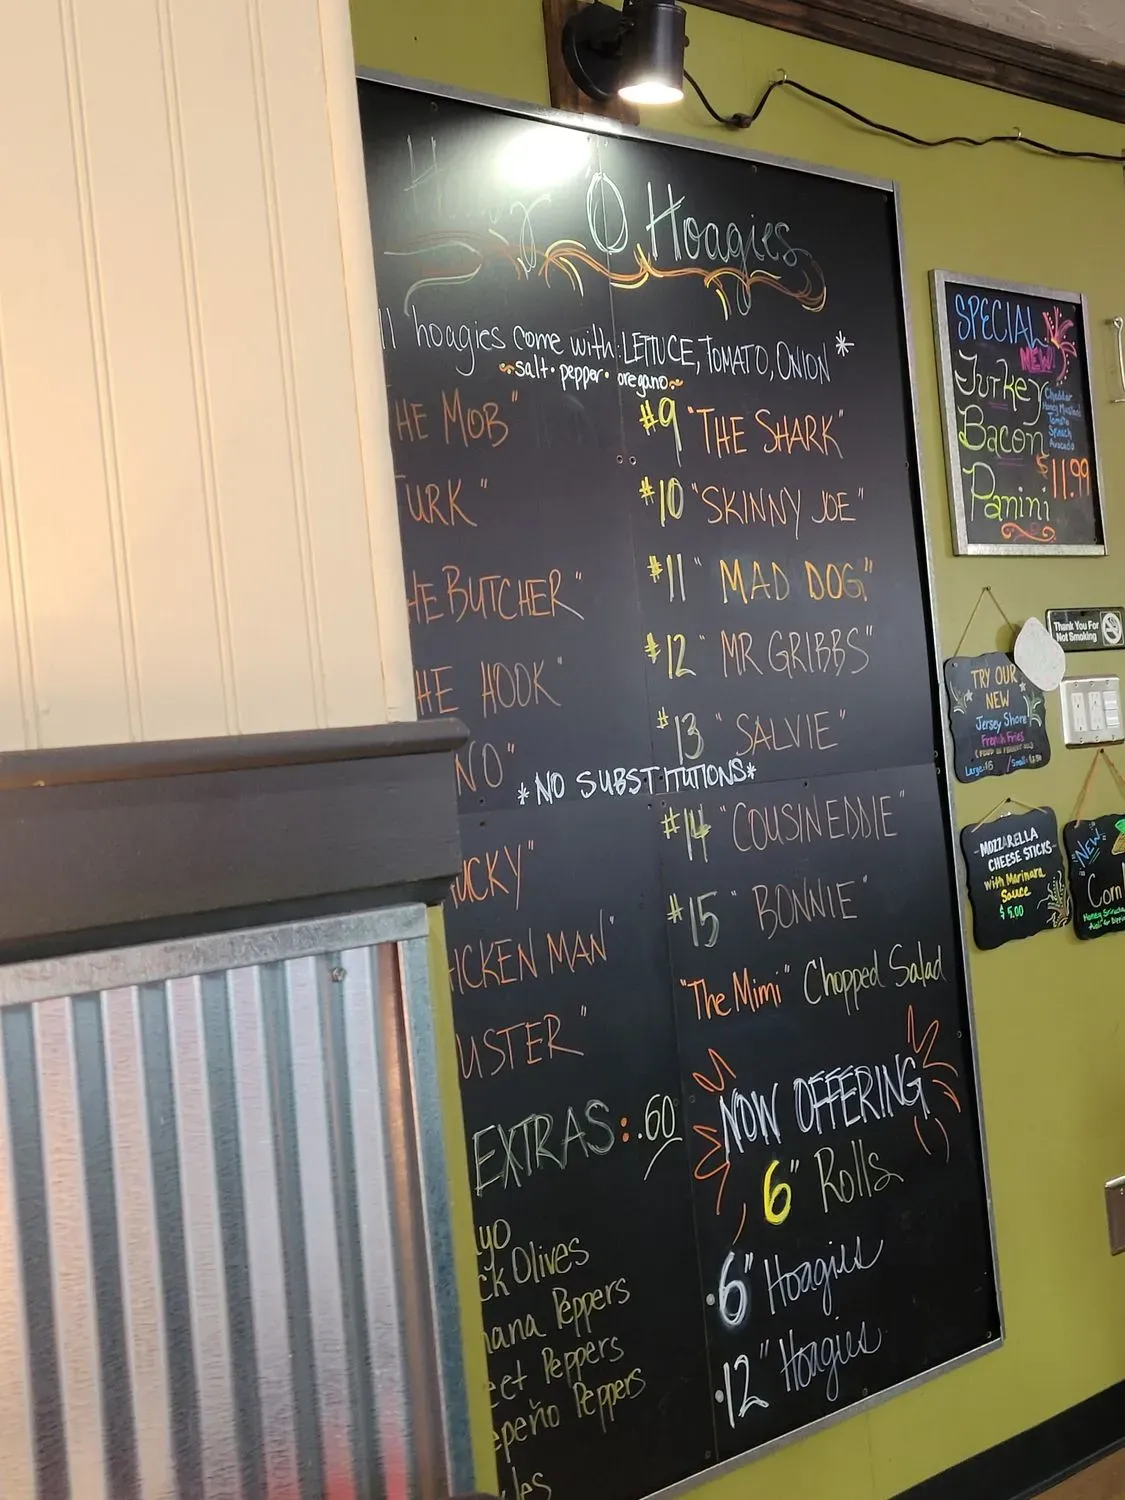 O Hoagies
ll hoagies come with: LETTUCE, TOMATO, ONION *
salt • pepper • oregano
HE MOB"
TURK"
HE BUTCHER"
HE HOOK"
NO"
*NO SUBSTITUTIONS*
UCKY"
HICKEN MAN"
USTER"
EXTRAS: .60
yo
ck Olives
nana Peppers
eet Peppers
epeño Peppers
les
#9 "THE SHARK"
#10 "SKINNY JOE"
#11 "MAD DOG"
#12 "MR GRIBBS"
#13 "SALVIE"
#14 "COUSIN EDDIE"
#15 "BONNIE"
"The Mimi" Chopped Salad
NOW OFFERING
6" Rolls
• 6" Hoagies
• 12" Hoagies
SPECIAL
NEW!
Turkey
Bacon
Panini
Cheddar
Honey Mustard
Tomato
Spinach
Avocado
$11.99
Thank You For
Not Smoking
TRY OUR
NEW
Jersey Shore
French Fries
Large: $6
-MOZZARELLA
CHEESE STICKS-
with Marinara
Sauce
$5.00
NEW
Corn